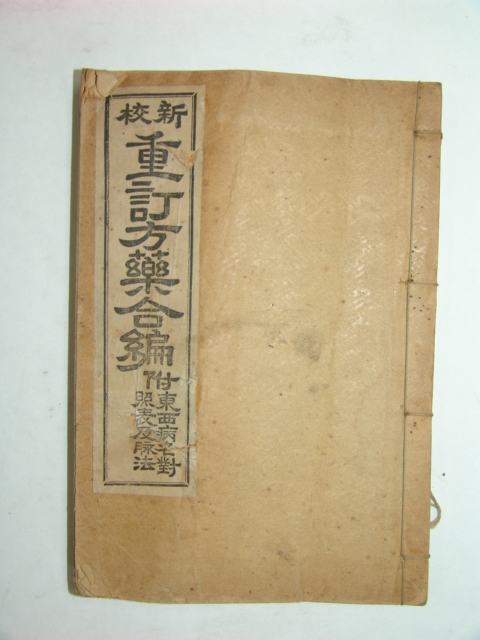 新校
重訂方藥合編
附東西病名對
照表及脉法